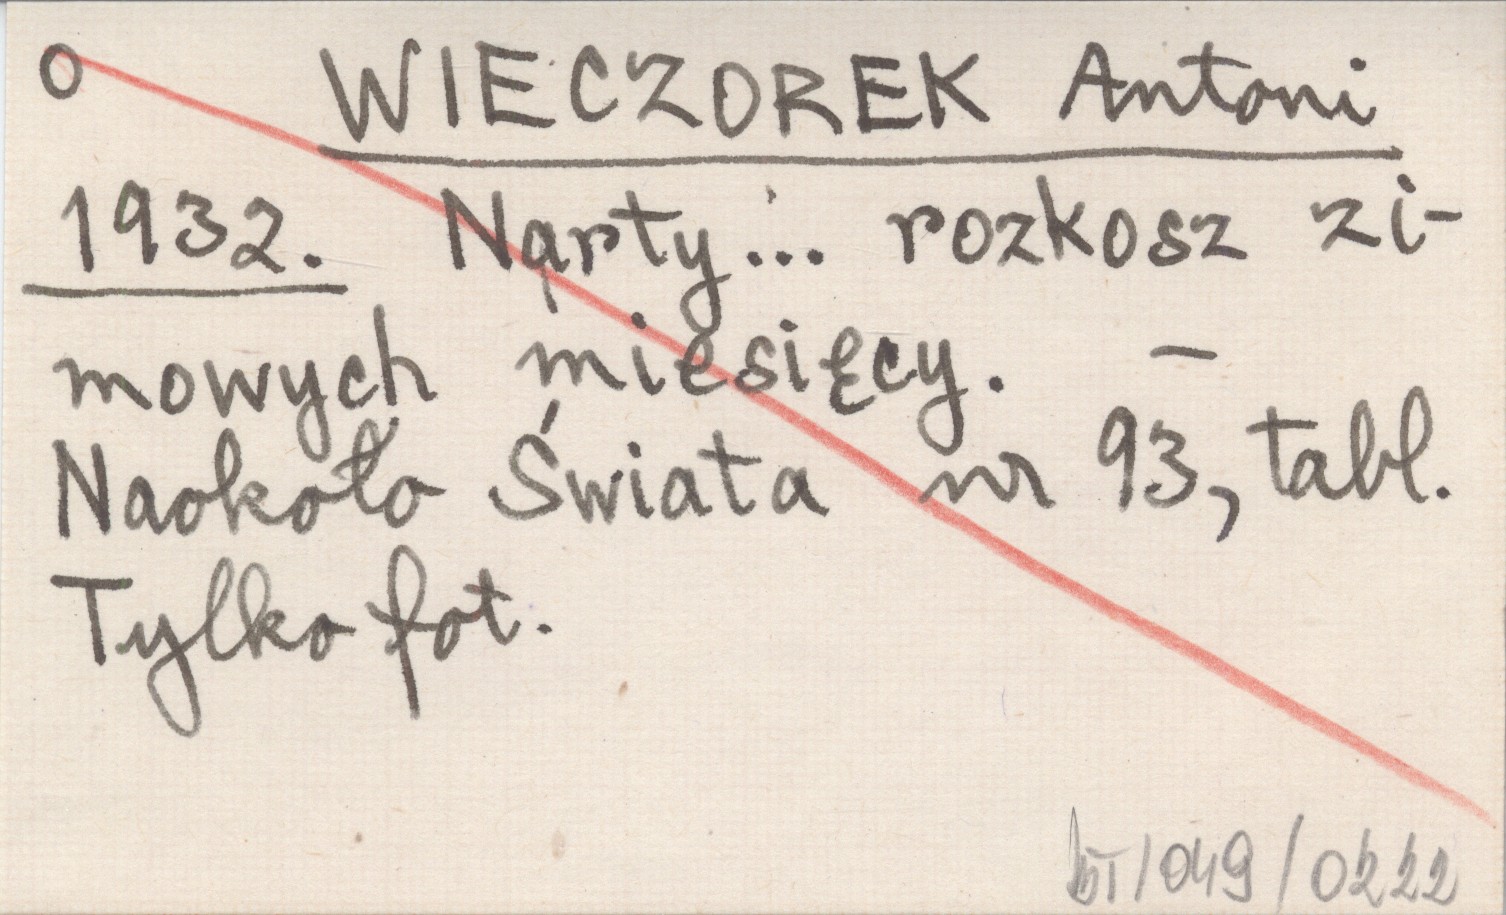 O WIECZOREK Antoni
1932. Narty... rozkosz zi-
mowych miesięcy. –
Naokoło Świata nr 93, tabl.
Tylko fot.
/049/0222